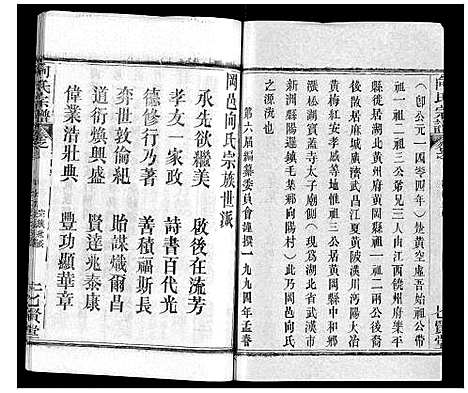 向氏宗譜
七賢堂
（即公元一四零四年）從黃空虛吾始祖一公帶
祖一二祖一三公弟兄三人由江西饒州府樂平
縣徙居湖北黃州府黃岡
於居麻城廣濟武昌江夏黃陂漢川沔陽大冶
黃梅紅安孝感等地惟祖三公黃岡縣中和鄉
漲松湖向氏蓋寺太子廟側（現為湖北省武漢市
新洲縣陽邏鎮毛集鄉向陽村）此乃岡邑向氏
之源流也
第六屆編纂委員會謹撰一九九四年孟春
岡邑向氏宗族世派
承先欲繼美 啟後在流芳
孝友一家政 詩書百代光
德修行乃著 善積福斯長
弈世敦倫紀 貽謀熾爾昌
道衍煥興盛 賢達兆泰康
偉業浩壯典 豐功顯華章
向氏宗譜
七賢堂